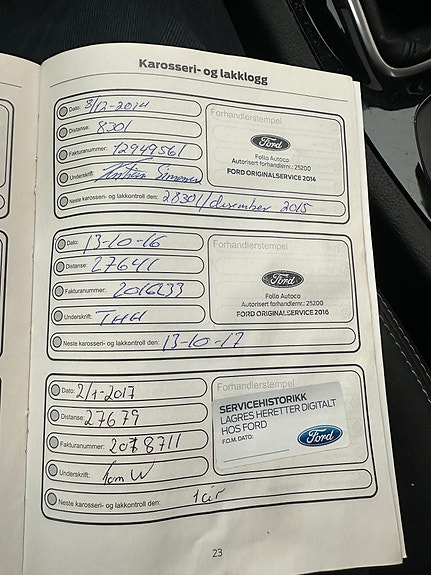 Karosseri- og lakklogg
Dato: 3/12-2014
Distanse: 8301
Fakturanummer: 12949561
Underskrift: Simonsen
Neste karosseri- og lakkontroll den: 28301/desember 2015
Forhandlerstempel
Ford
Follo Autoco
Autorisert forhandlernr.: 25200
FORD ORIGINALSERVICE 2014
Dato: 13-10-16
Distanse: 27641
Fakturanummer: 2016233
Underskrift: THH
Neste karosseri- og lakkontroll den: 13-10-17
Forhandlerstempel
Ford
Follo Autoco
Autorisert forhandlernr.: 25200
FORD ORIGINALSERVICE 2016
Dato: 2/1-2017
Distanse: 27679
Fakturanummer: 2078711
Underskrift: Tom W
Neste karosseri- og lakkontroll den: 1 år
Forhandlerstempel
SERVICEHISTORIKK
LAGRES HERETTER DIGITALT
HOS FORD
F.O.M. DATO:
Ford
23